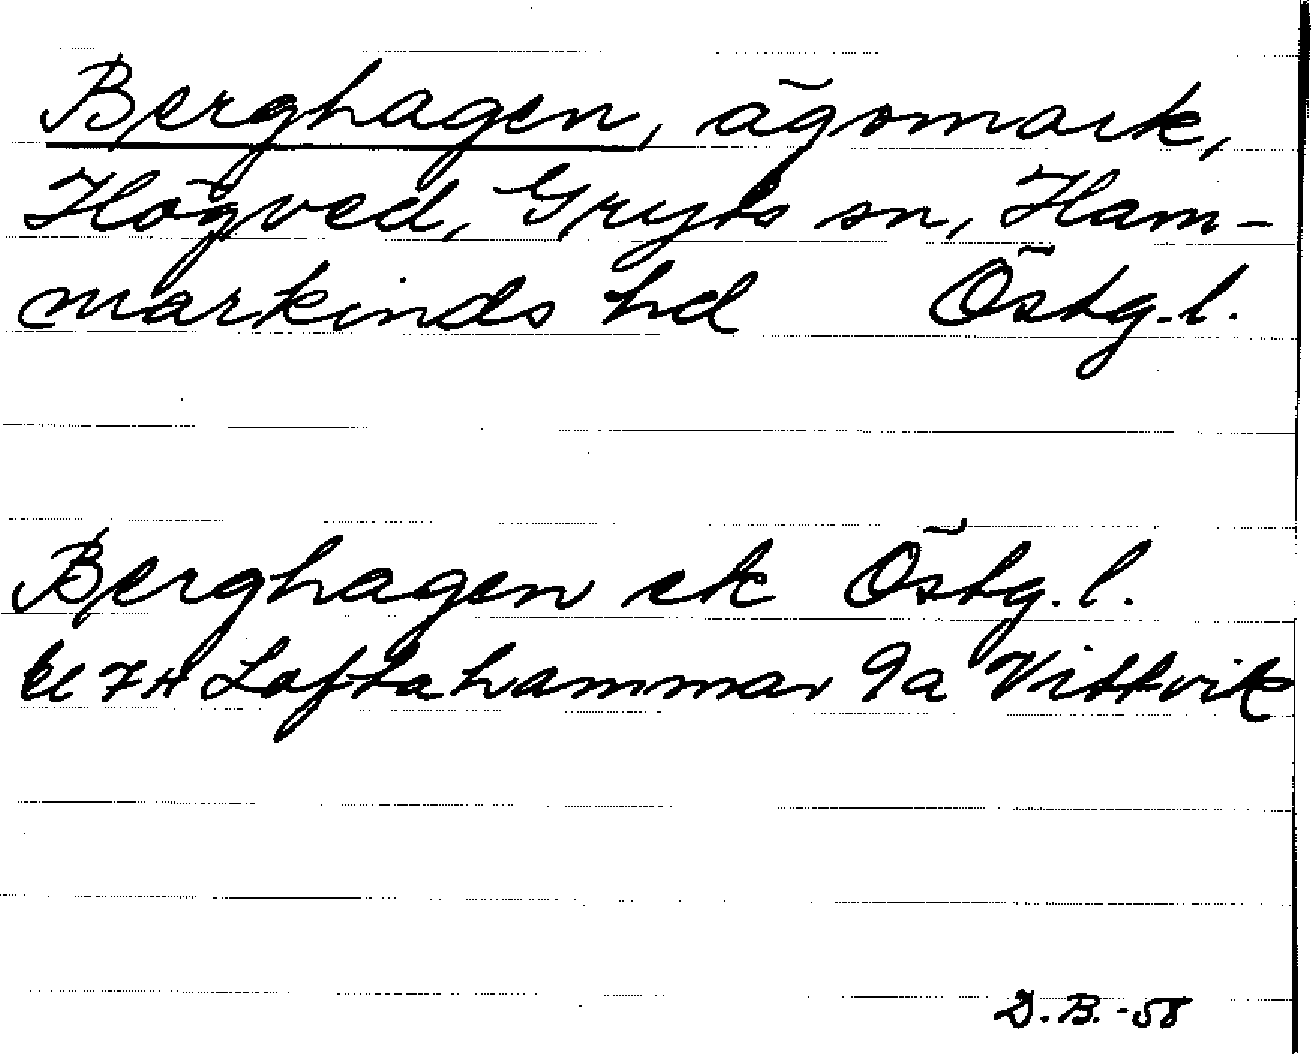 Berghagen, ägomark,
Högved, Gryts sn, Ham-
markinds hd Östg.l.
Berghagen ek Östg.l.
bl 7H Loftahammar 9a Vittvik
D.B.-58